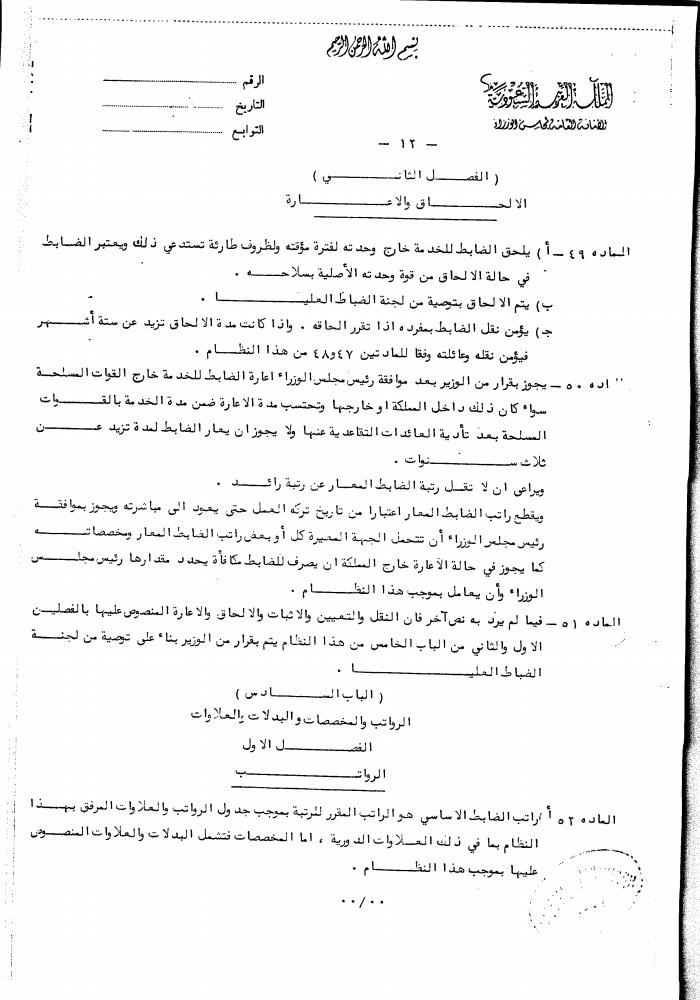 بسم الله الرحمن الرحيم
المملكة العربية السعودية
الأمانة العامة لمجلس الوزراء
الرقم
التاريخ
التوابع
- ١٢ -
( الفصل الثاني )
الالحاق والاعارة
الماده ٤٩ - أ ) يلحق الضابط للخدمة خارج وحدته لفترة مؤقته ولظروف طارئة تستدعي ذلك ويعتبر الضابط
في حالة الالحاق من قوة وحدته الأصلية بسلاحه .
ب) يتم الالحاق بتوصية من لجنة الضباط العليا .
ج) يؤمن نقل الضابط بمفرده اذا تقرر الحاقه . واذا كانت مدة الالحاق تزيد عن ستة أشهر
فيؤمن نقله وعائلته وفقا للمادتين ٤٧ و٤٨ من هذا النظام .
اده ٥٠ - يجوز بقرار من الوزير بعد موافقة رئيس مجلس الوزراء اعارة الضابط للخدمة خارج القوات المسلحة
سواء كان ذلك داخل المملكة او خارجها وتحتسب مدة الاعارة ضمن مدة الخدمة بالقوات
المسلحة بعد تأدية العائدات التقاعدية عنها ولا يجوز ان يعار الضابط لمدة تزيد عن
ثلاث سنوات .
ويراعى ان لا تقل رتبة الضابط المعار عن رتبة رائد .
ويقطع راتب الضابط المعار اعتبارا من تاريخ تركه العمل حتى يعود الى مباشرته ويجوز بموافقة
رئيس مجلس الوزراء أن تتحمل الجهة المعيرة كل أو بعض راتب الضابط المعار ومخصصاته
كما يجوز في حالة الاعارة خارج المملكة ان يصرف للضابط مكافأة يحدد مقدارها رئيس مجلس
الوزراء وأن يعامل بموجب هذا النظام .
الماده ٥١ - فيما لم يرد به نص آخر فان النقل والتعيين والاثبات والالحاق والاعارة المنصوص عليها بالفصلين
الاول والثاني من الباب الخامس من هذا النظام يتم بقرار من الوزير بناء على توصية من لجنة
الضباط العليا .
( الباب السادس )
الرواتب والمخصصات والبدلات والعلاوات
الفصل الاول
الرواتب
الماده ٥٢ أ / راتب الضابط الاساسي هو الراتب المقرر للرتبة بموجب جدول الرواتب والعلاوات المرفق بهذا
النظام بما في ذلك العلاوات الدورية ، اما المخصصات فتشمل البدلات والعلاوات المنصوص
عليها بموجب هذا النظام .
٠٠/٠٠